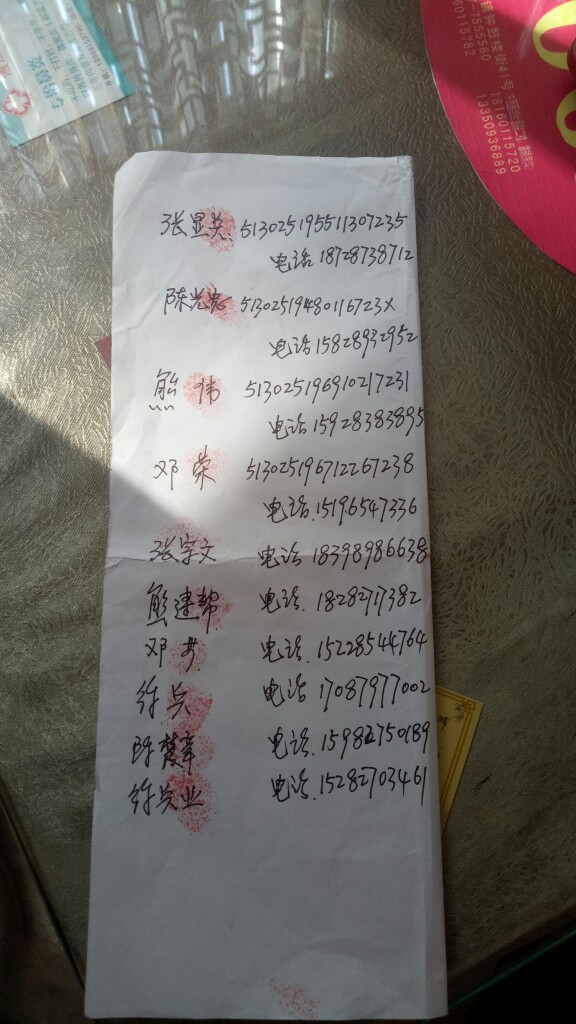 张显兰 513025195511307235
电话 18728738712
陈光忠 51302519480116723X
电话 15828932952
熊伟 513025196910217231
电话 15928383895
邓荣 513025196712267238
电话.15196547336
张宗文 电话 18398986638
熊建帮 电话.18282717382
邓 电话.15228544764
徐兵 电话 17087977002
陈 电话.15982750189
徐兴业 电话.15282703461
18160115720
13350936889